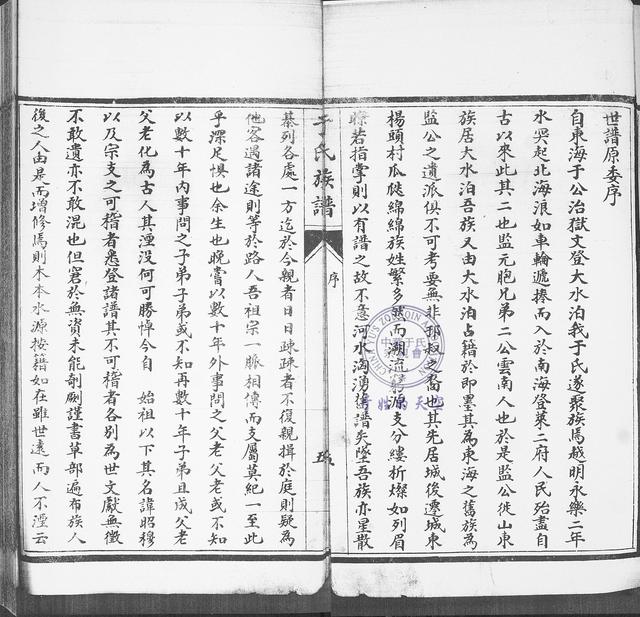 世譜原委序
自東海于公治獄文登大水泊我于氏遂聚族焉越明永樂二年
水哭起北海浪如車輪遞捲而入於南海登萊二府人民殆盡自
古以來此其一也監元胞兄弟二公雲南人也於是監公徙山東
族居大水泊吾族又由大水泊占籍於即墨其為東海之舊族為
監公之遺派俱不可考要無非邗叔之裔也其先居城後遷城東
楊頭村瓜瓞綿綿族姓繁多然而溯流窮源支分縷析燦如列眉
瞭若指掌則以有譜之故不意河水淘湧舊譜失墜吾族亦星散
于氏族譜
序
棊列各處一方迄於今親者日日疎疎者不復親揖於庭則疑為
他客遇諸途則等於路人吾祖宗一脈相傳而支屬莫紀一至此
乎深足懼也余生也晚嘗以數十年外事問之父老父老或不知
以數十年內事問之子弟子弟或不知再數十年子弟且成父老
父老化為古人其湮没何可勝悼今自　始祖以下其名諱昭穆
以及宗支之可稽者悉登諸譜其不可稽者各別為世文獻無徵
不敢遺亦不敢混也但窘於無資未能剞劂謹書草部遍布族人
後之人由是而增修焉則木本水源按籍如在雖世遠而人不湮云